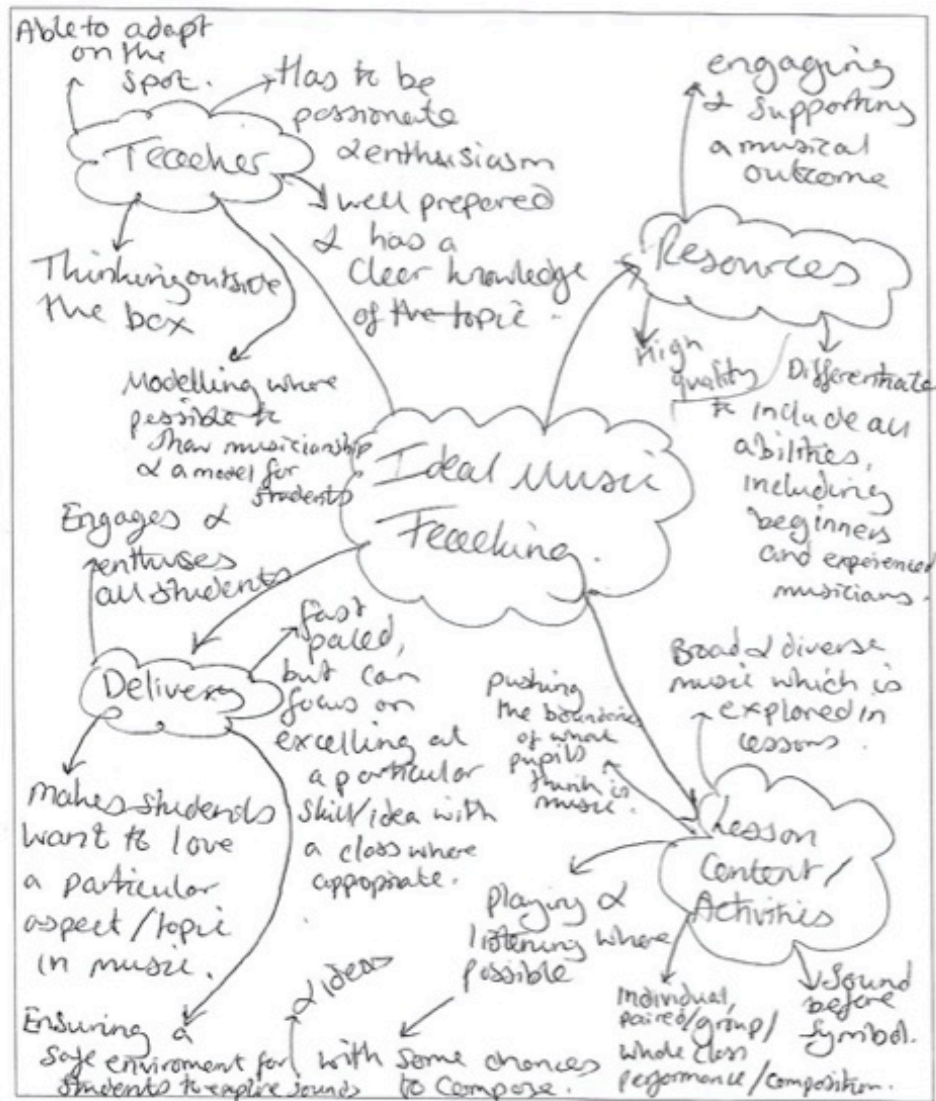 Able to adapt
on the
spot.
Teacher
Has to be
passionate
& enthusiasm
well prepared
& has a
clear knowledge
of the topic.
Thinking outside
the box
Modelling where
possible to
show musicianship
& a model for
students
engaging
& supporting
a musical
outcome
Resources
High
quality
Differentiate
to include all
abilities,
including
beginners
and experienced
musicians.
Ideal Music
Teaching.
Engages &
enthuses
all students
Delivery
fast
paced,
but can
focus on
excelling at
a particular
skill/idea with
a class where
appropiate.
makes students
want to love
a particular
aspect/topic
in music.
Ensuring a
safe enviroment for
students to explore sounds
& ideas
Broad & diverse
music which is
explored in
lessons.
pushing
the boundries
of what
pupils
think is
music.
Lesson
Content/
Activities
playing &
listening where
possible
with some chances
to compose.
Individual,
paired/group/
whole class
performance/composition.
Sound
before
symbol.